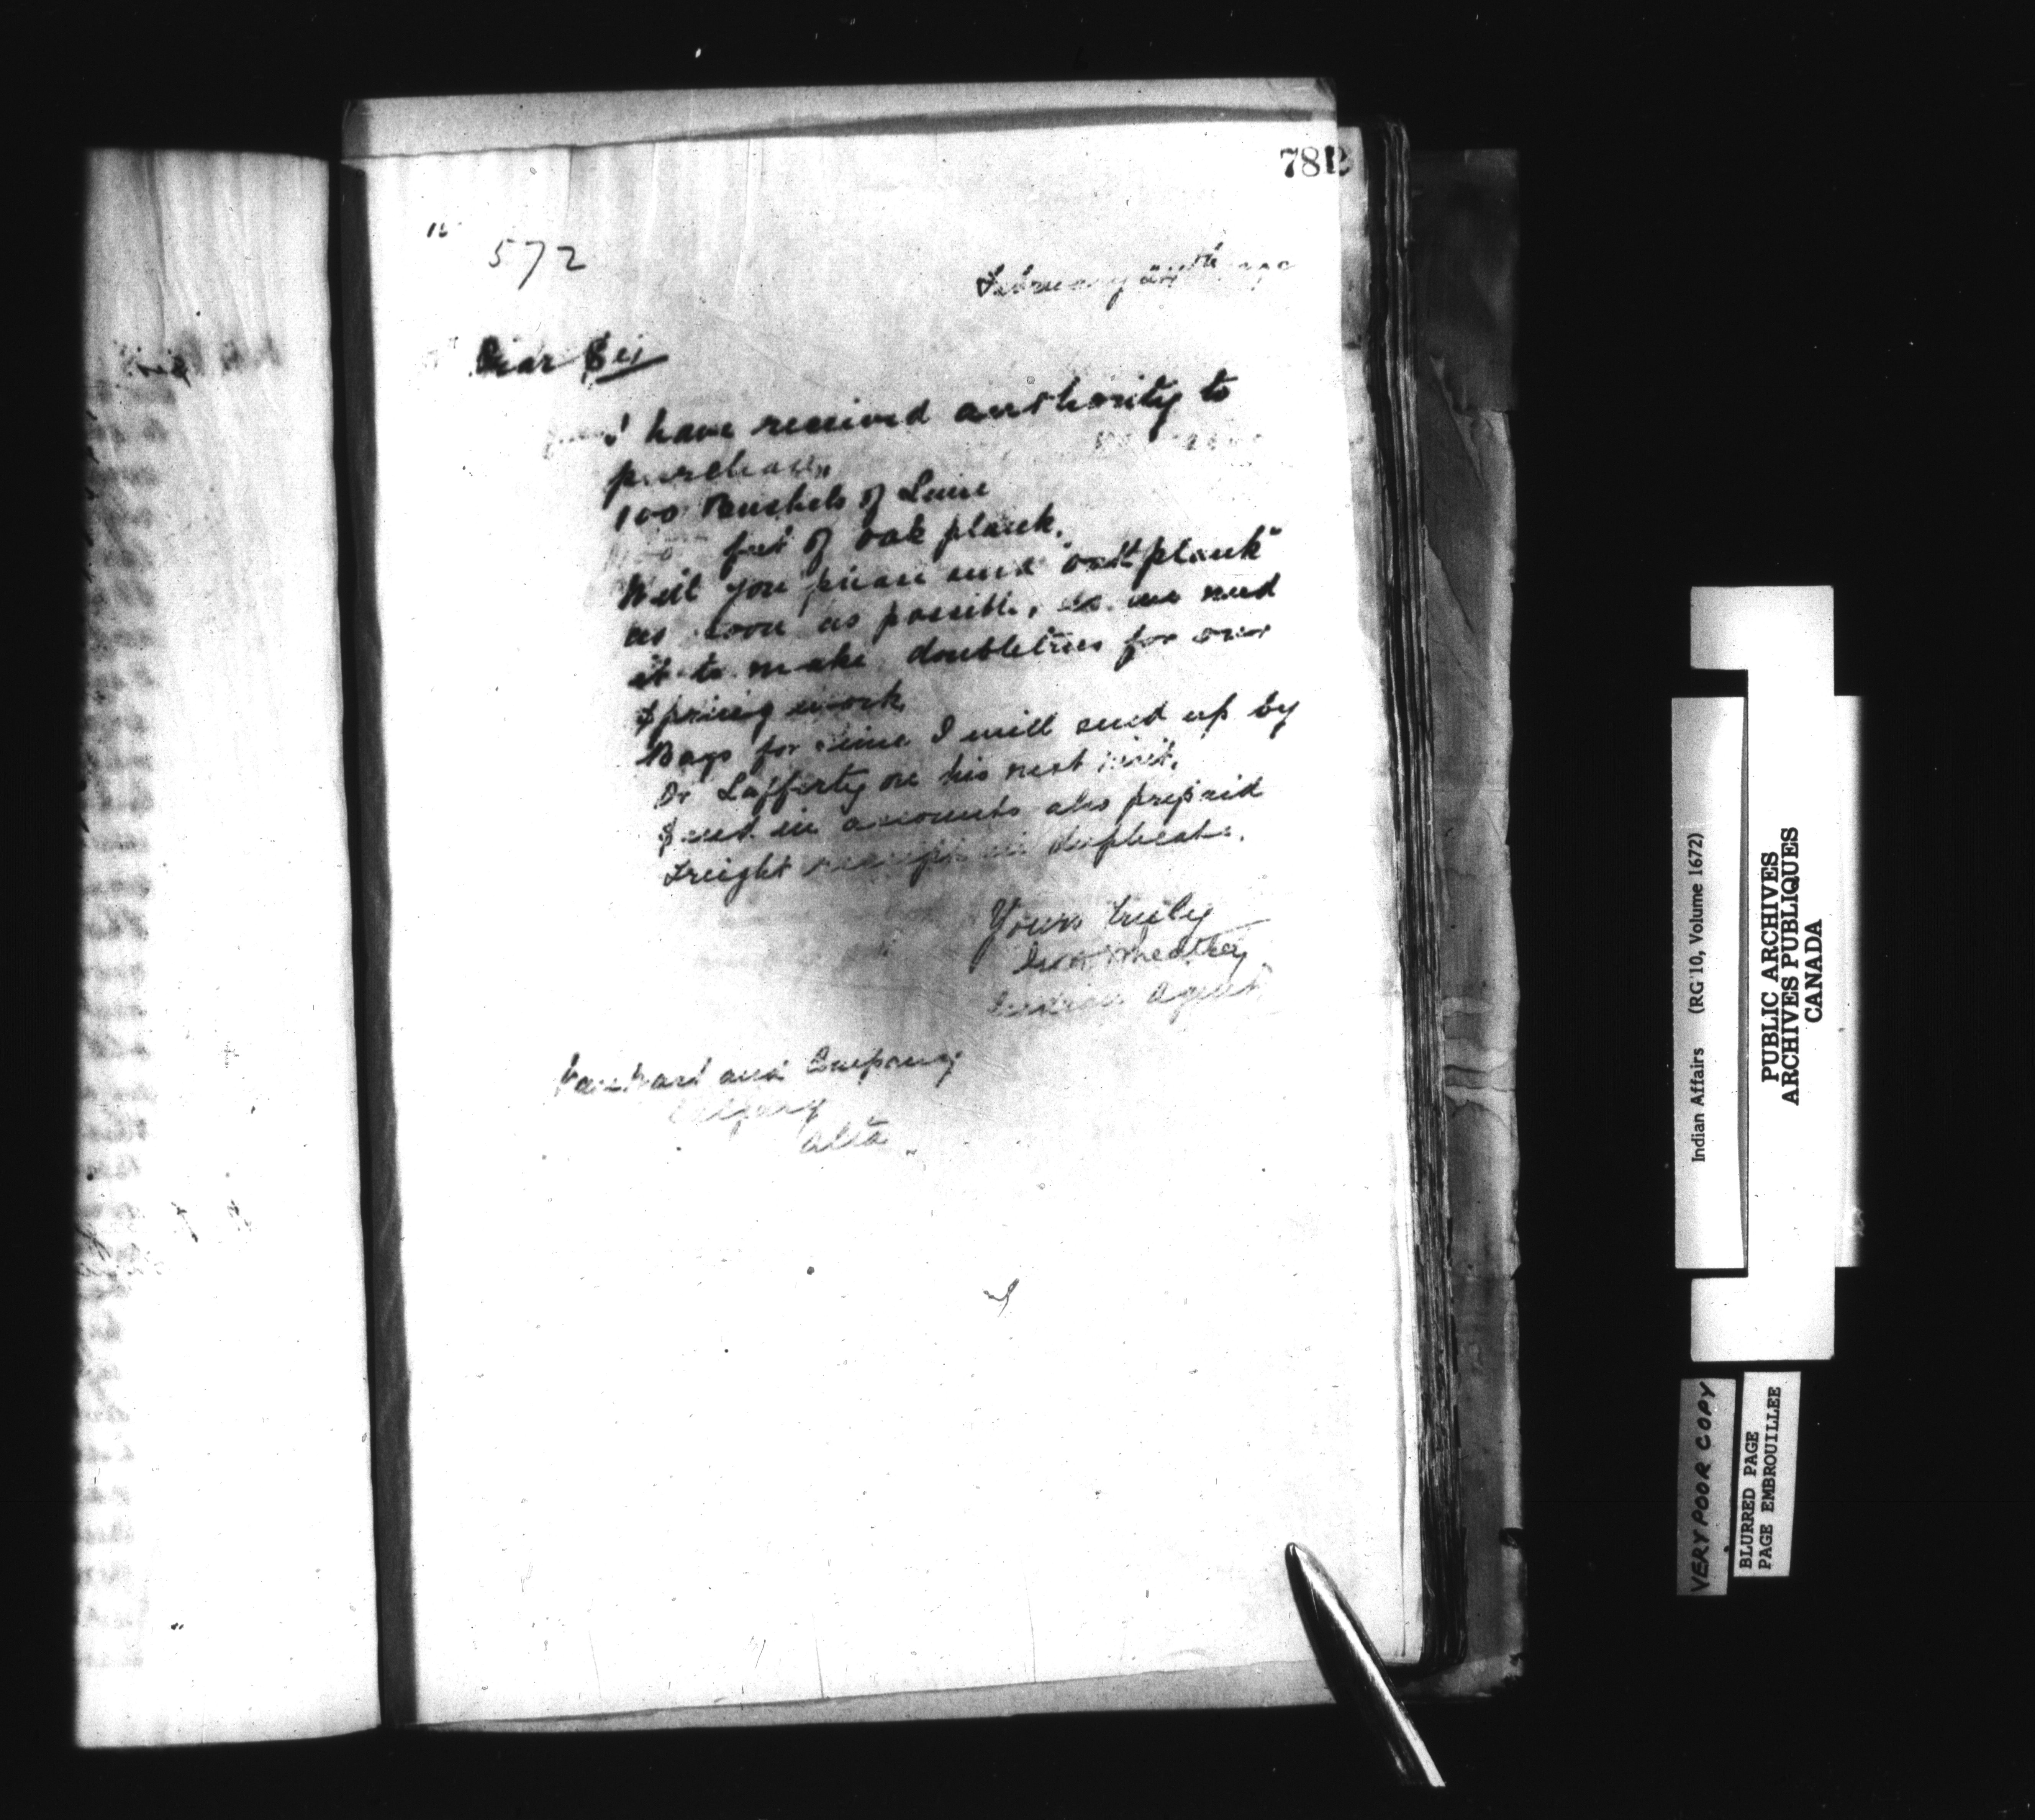 572
February
Dear Sir
I have received authority to
purchase
100 Bushels of Lime
feet of oak plank.
Will you please send "oak plank"
as soon as possible, as we need
it to make doubletrees for our
spring work
Bags for lime I will send up by
Dr Lafferty on his next visit.
Send in accounts also prepaid
Freight in duplicate.
Yours truly
Wheatley
Indian Agent
and Company
Calgary
Alta
Indian Affairs (RG 10, Volume 1672)
PUBLIC ARCHIVES
ARCHIVES PUBLIQUES
CANADA
VERY POOR COPY
BLURRED PAGE
PAGE EMBROUILLEE